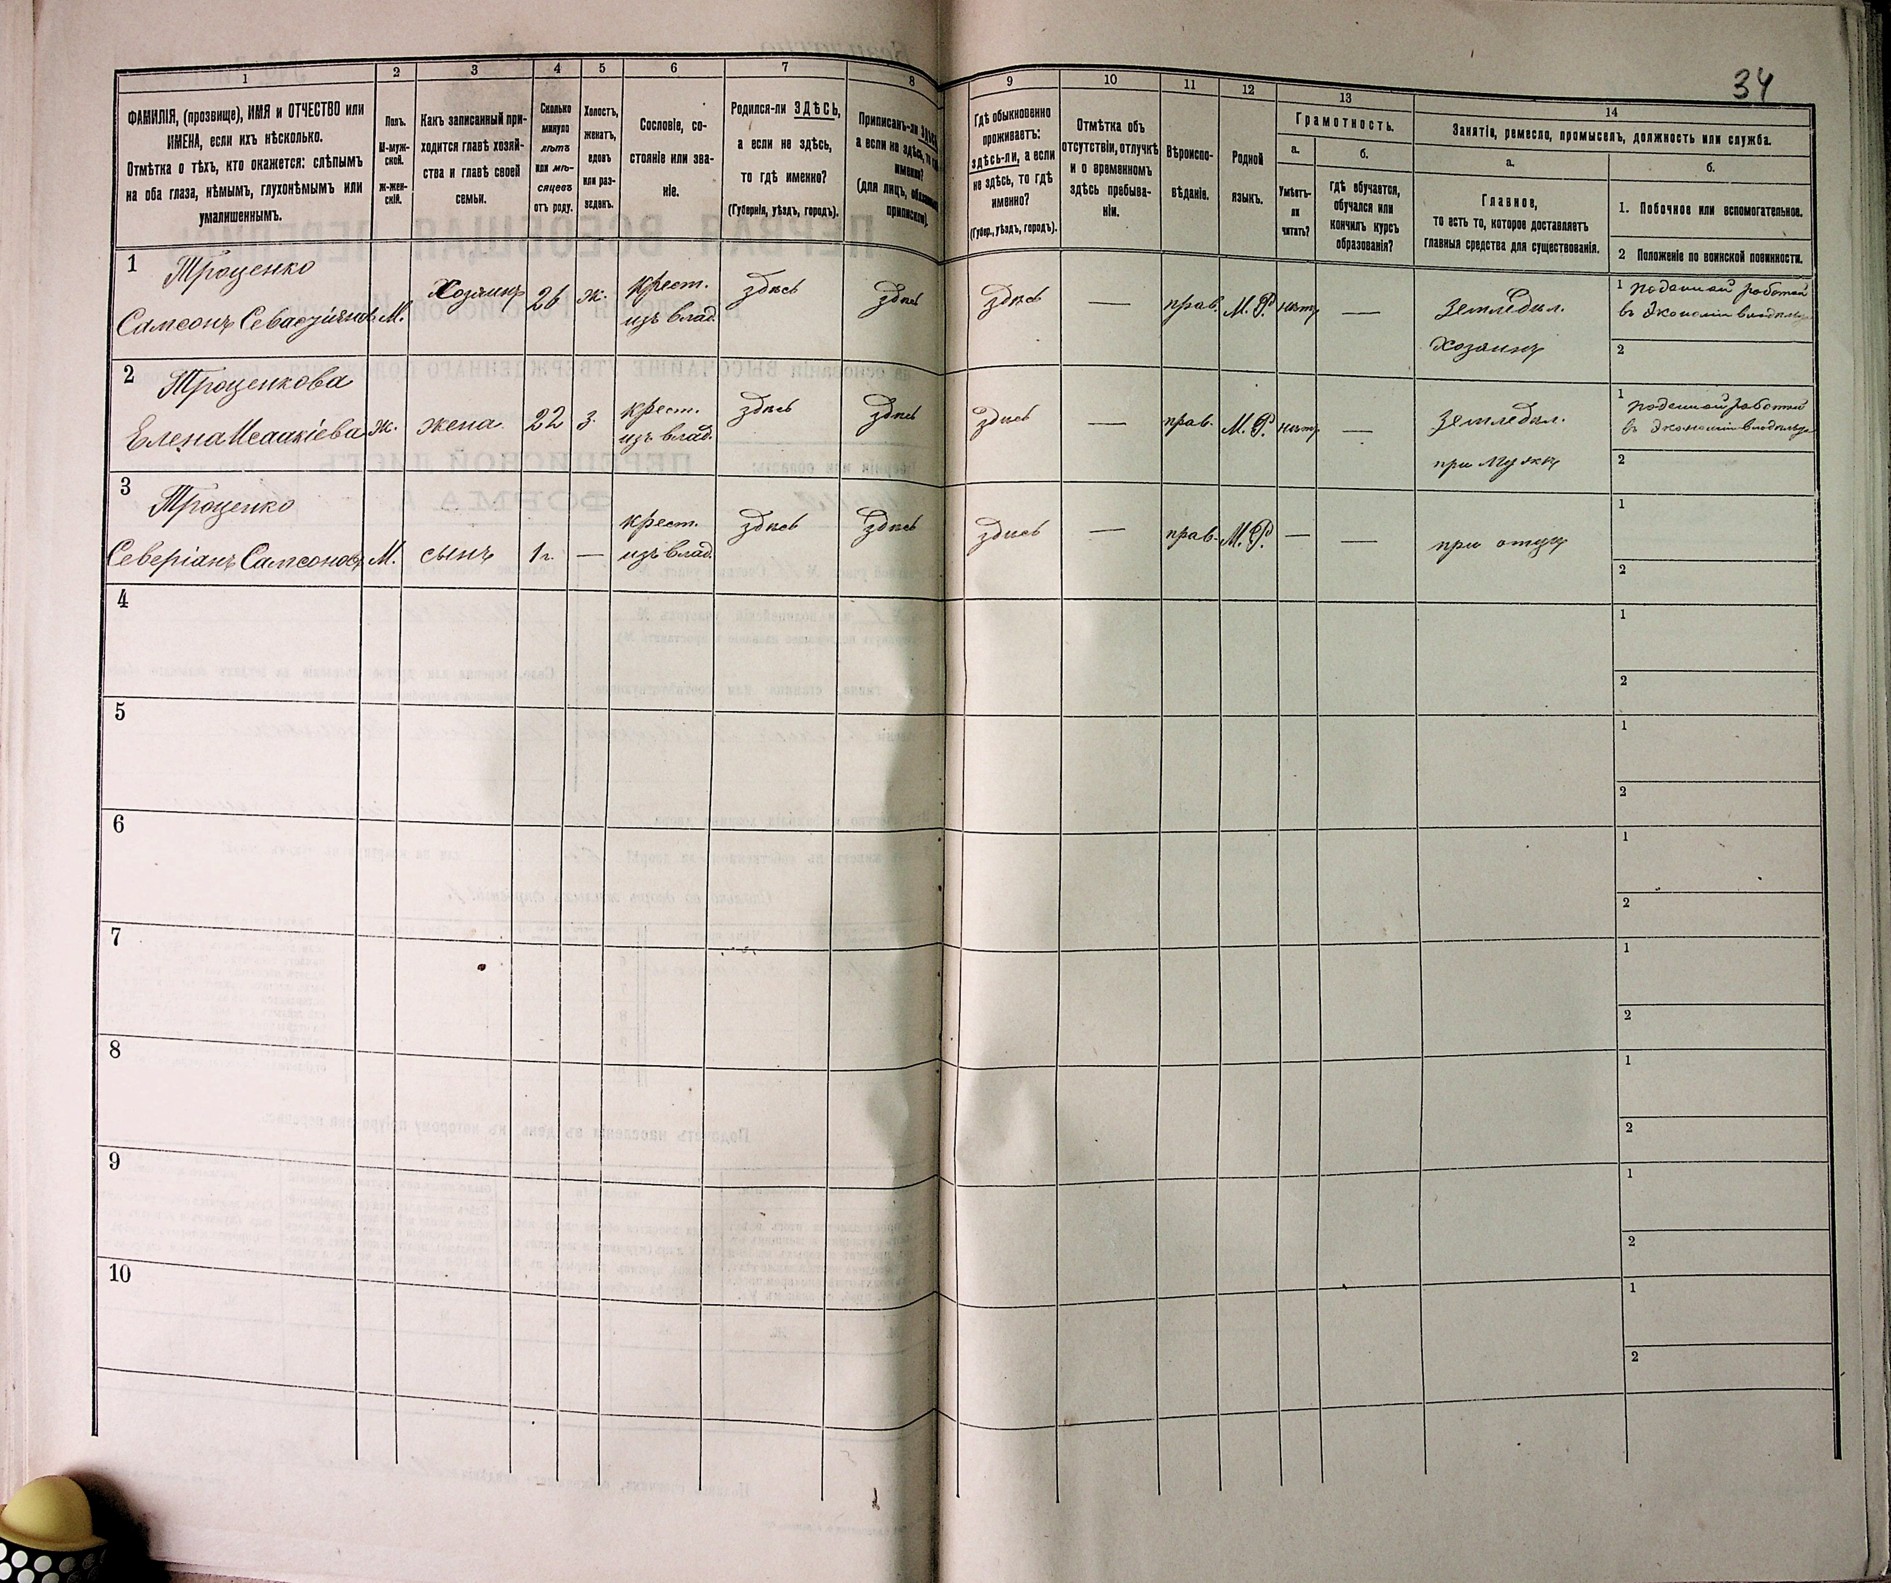 34
1
2
3
4
5
6
7
8
9
10
11
12
13
14
ФАМИЛІЯ, (прозвище), ИМЯ и ОТЧЕСТВО или
ИМЕНА, если ихъ нѣсколько.
Отмѣтка о тѣхъ, кто окажется: слѣпымъ
на оба глаза, нѣмымъ, глухонѣмымъ или
умалишеннымъ.
Полъ.
М-муж-
ской.
Ж-жен-
скій.
Какъ записанный при-
ходится главѣ хозяй-
ства и главѣ своей
семьи.
Сколько
минуло
лѣтъ
или мѣ-
сяцевъ
отъ роду.
Холостъ,
женатъ,
вдовъ
или раз-
веденъ.
Сословіе, со-
стояніе или зва-
ніе.
Родился-ли ЗДѢСЬ,
а если не здѣсь,
то гдѣ именно?
(Губернія, уѣздъ, городъ).
Приписанъ-ли ЗДѢСЬ,
а если не здѣсь, то гдѣ
именно?
(для лицъ, обязанныхъ
припискою).
Гдѣ обыкновенно
проживаетъ:
здѣсь-ли, а если
не здѣсь, то гдѣ
именно?
(Губер., уѣздъ, городъ).
Отмѣтка объ
отсутствіи, отлучкѣ
и о временномъ
здѣсь пребыва-
ніи.
Вѣроиспо-
вѣданіе.
Родной
языкъ.
Грамотность.
а.
Умѣетъ-
ли
читать?
б.
гдѣ обучается,
обучался или
кончилъ курсъ
образованія?
Занятіе, ремесло, промыселъ, должность или служба.
а.
Главное,
то есть то, которое доставляетъ
главныя средства для существованія.
б.
1. Побочное или вспомогательное.
2 Положеніе по воинской повинности.
1 Троценко
Самсонъ Севастіановъ М. Хозяинъ 26 ж. крест.
изъ влад. здѣсь здѣсь здѣсь — прав. М. Р. нѣтъ — Земледѣл.
Хозяинъ
1 поденной работой
въ Экономіи
2
2 Троценкова
Елена Исаакіева ж. жена 22 з. крест.
изъ влад. здѣсь здѣсь здѣсь — прав. М. Р. нѣтъ — Земледѣл.
при мужѣ
1 поденной работой
въ Экономіи
2
3 Троценко
Северіанъ Самсоновъ М. сынъ 1 г. — крест.
изъ влад. здѣсь здѣсь здѣсь — прав. М. Р. — — при отцѣ
1
2
4
1
2
5
1
2
6
1
2
7
1
2
8
1
2
9
1
2
10
1
2